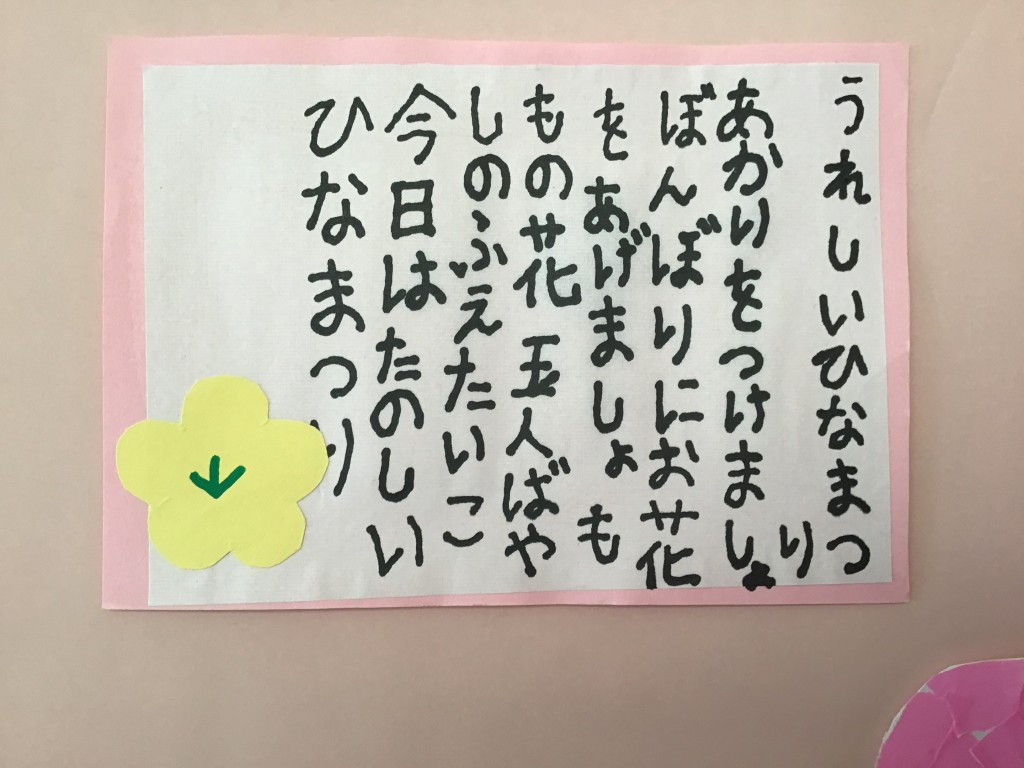 うれしいひなまつ
り
あかりをつけましょ
ぼんぼりにお花
をあげましょも
もの花玉人ばや
しのふえたいこ
今日はたのしい
ひなまつり